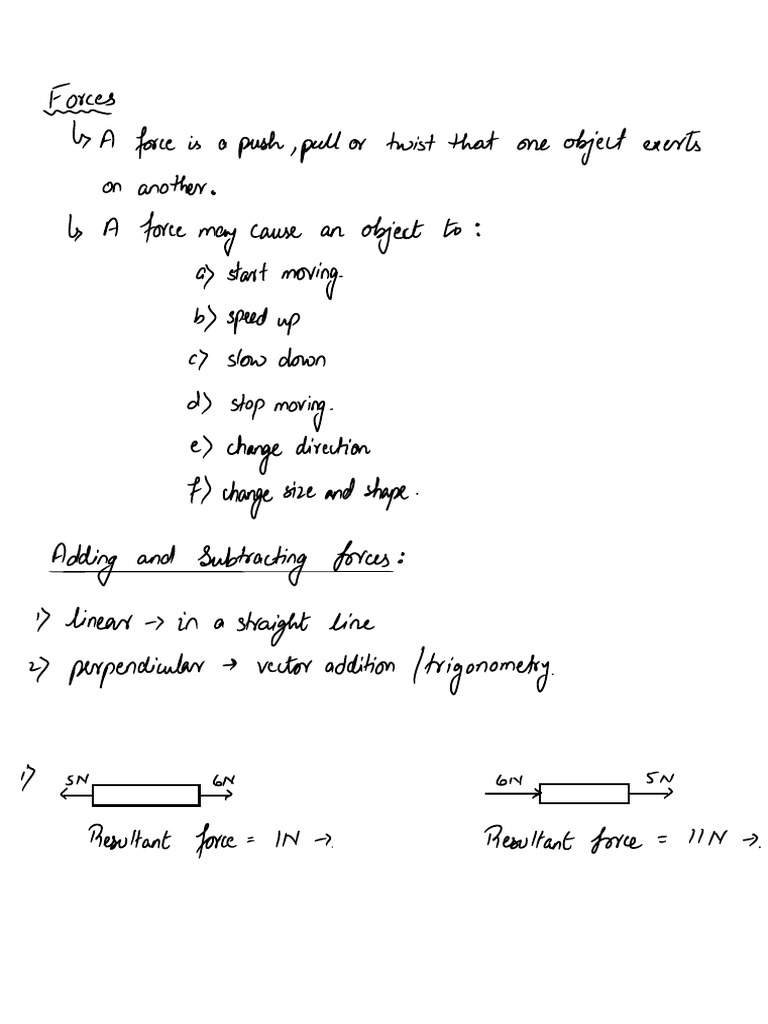 Forces
↳ A force is a push, pull or twist that one object exerts
on another.
↳ A force may cause an object to:
a) start moving.
b) speed up
c) slow down
d) stop moving.
e) change direction
f) change size and shape.
Adding and Subtracting forces:
1) linear → in a straight line
2) perpendicular → vector addition / trigonometry.
1) 5N 6N 6N 5N
Resultant force = 1N →. Resultant force = 11N →.